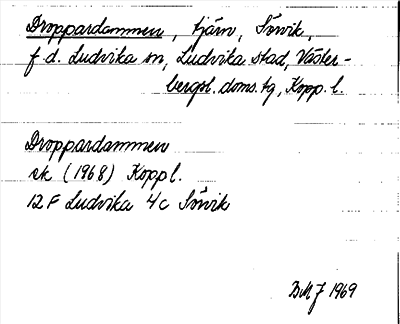 Droppardammen, tjärn, Sörvik,
f d. Ludvika sn, Ludvika stad, Väster-
bergsl. doms. tg, Kopp. l.
Droppardammen
ek (1968) Kopp l.
12 F Ludvika 4c Sörvik
BMJ 1969